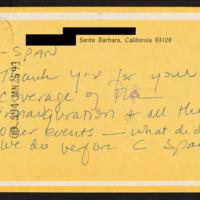 Santa Barbara, California 93108
-SPAN
Thank you for your
coverage of the
inauguration & all the
other events — what did
we do before C Span
JAN 25 93